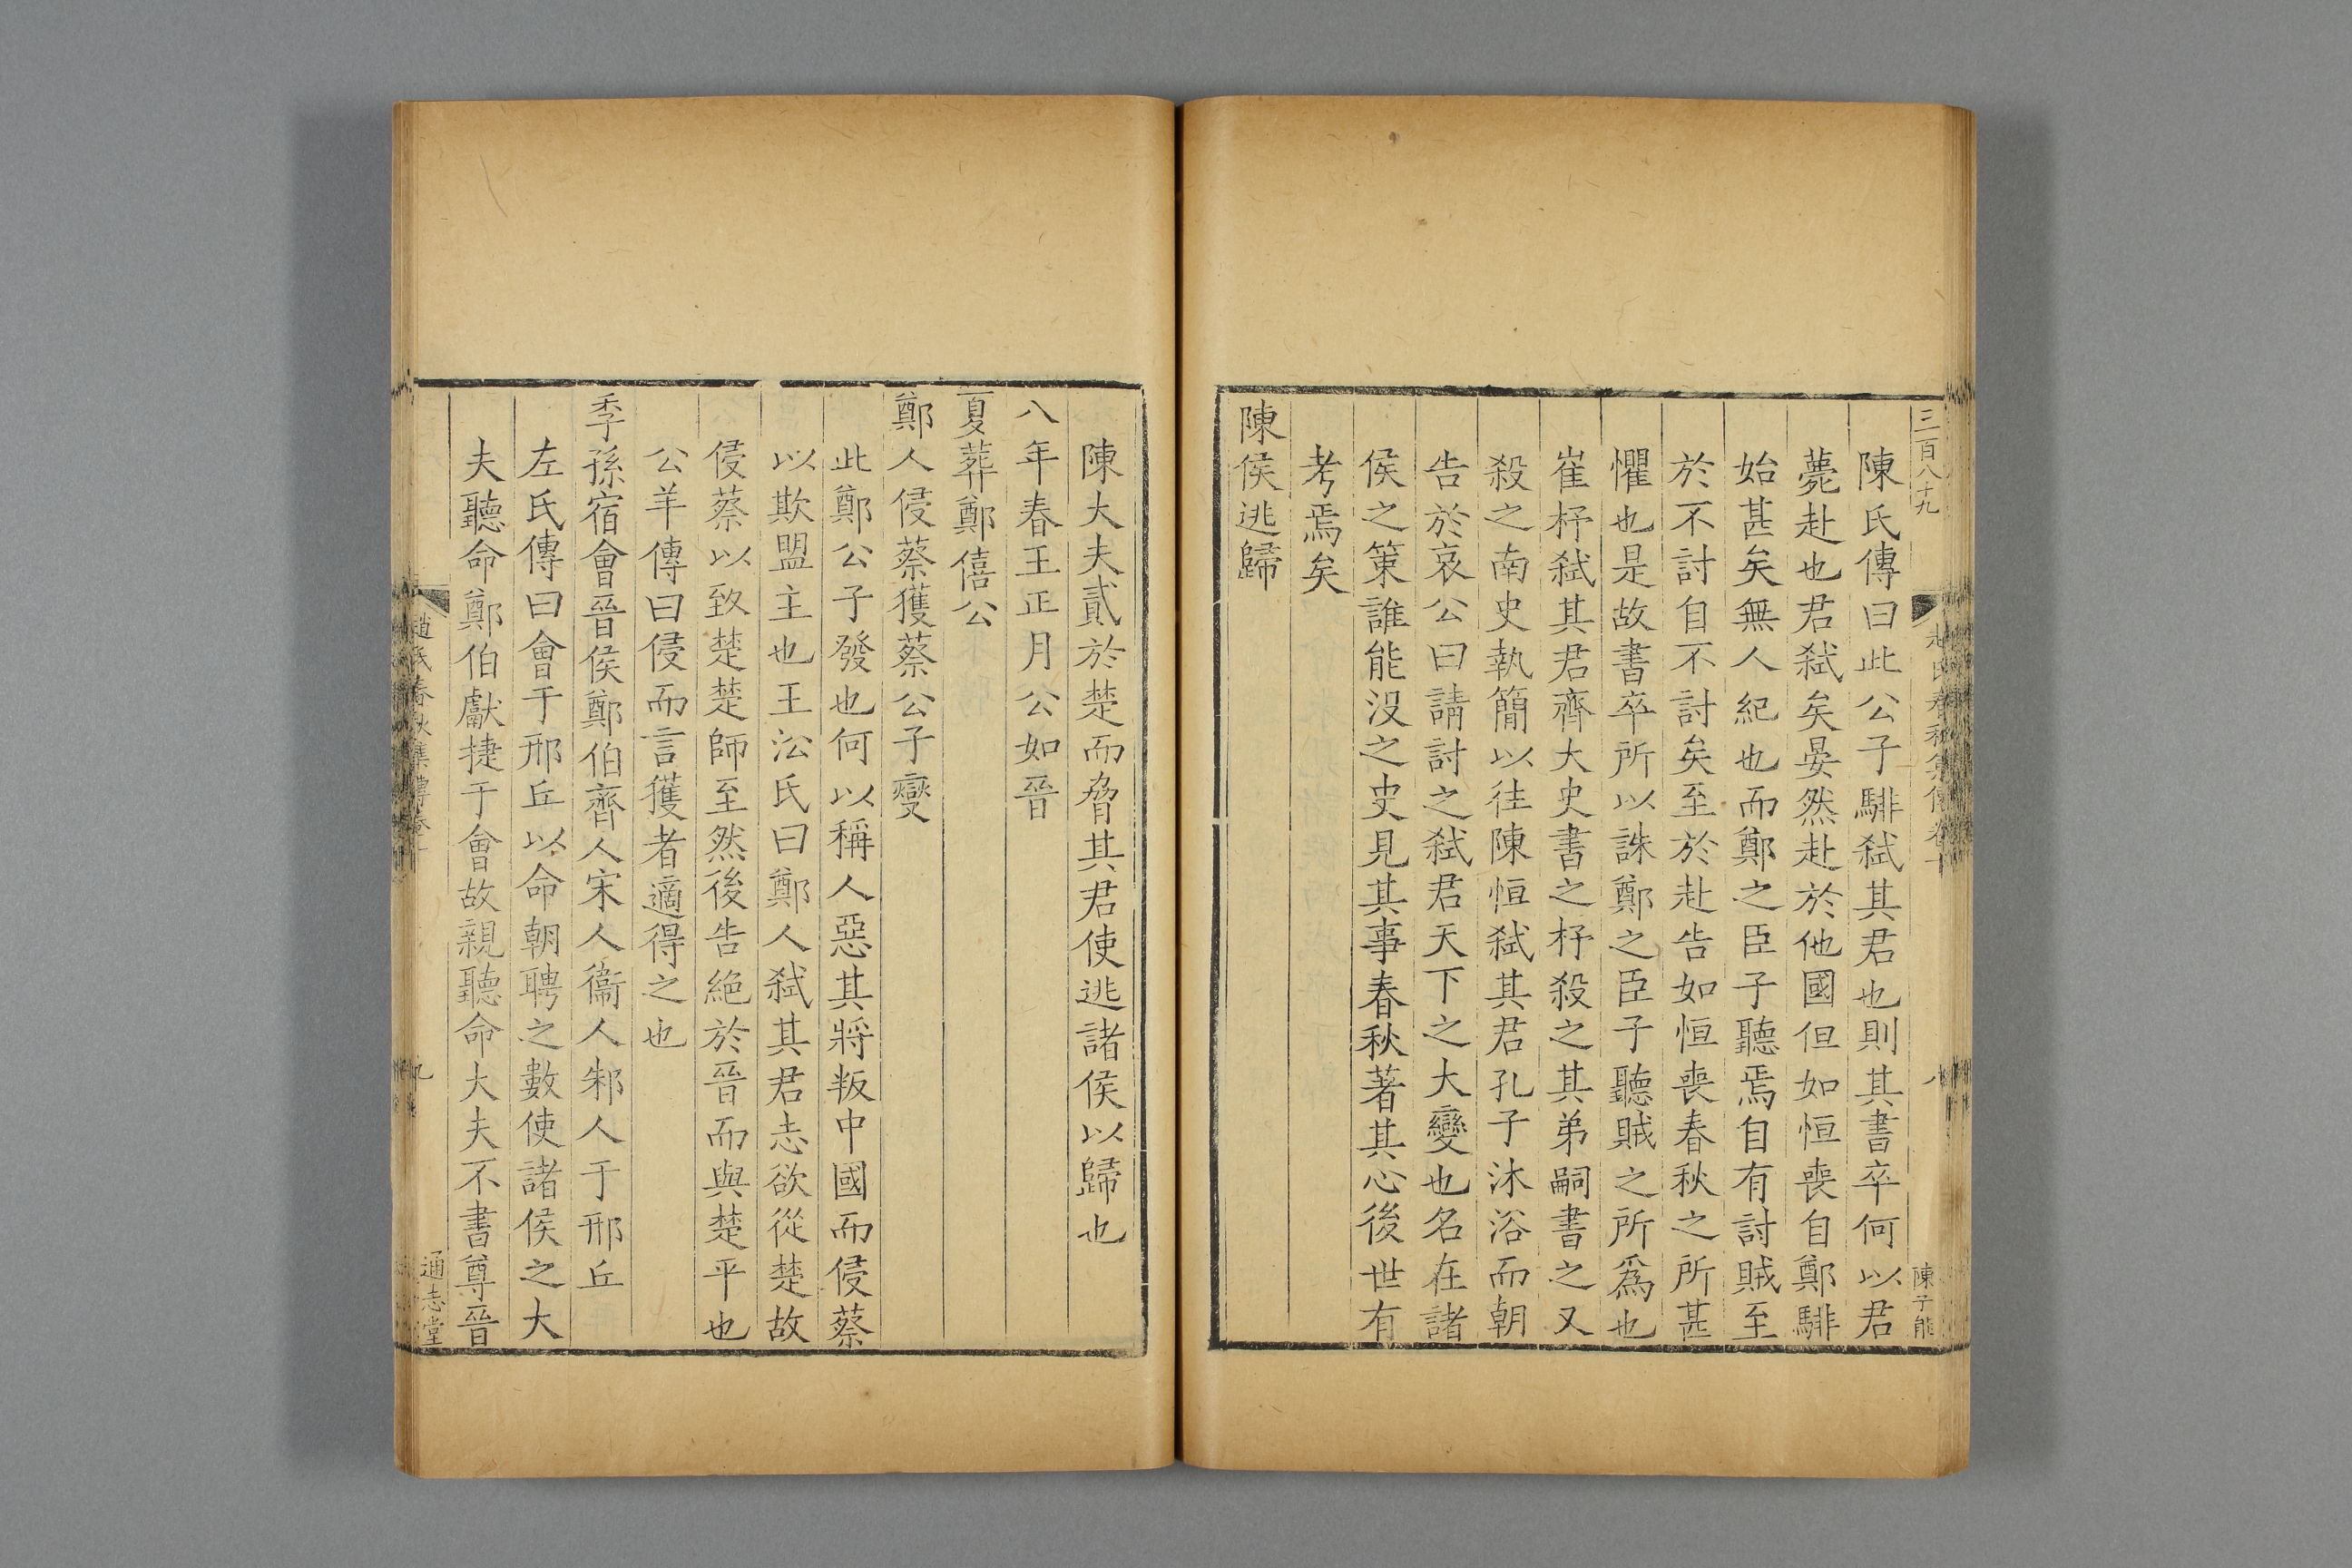 三百八十九
春秋集傳卷十
八
陳子能
陳氏傳曰此公子騑弑其君也則其書卒何以君
薨赴也君弑矣晏然赴於他國但如恒喪自鄭騑
始甚矣無人紀也而鄭之臣子聽焉自有討賊至
於不討自不討矣至於赴告如恒喪春秋之所甚
懼也是故書卒所以誅鄭之臣子聽賊之所爲也
崔杼弑其君齊大史書之杼殺之其弟嗣書之又
殺之南史執簡以往陳恒弑其君孔子沐浴而朝
告於哀公曰請討之弑君天下之大變也名在諸
侯之策誰能沒之史見其事春秋著其心後世有
考焉矣
陳侯逃歸
陳大夫貳於楚而脅其君使逃諸侯以歸也
八年春王正月公如晉
夏葬鄭僖公
鄭人侵蔡獲蔡公子燮
此鄭公子發也何以稱人惡其將叛中國而侵蔡
以欺盟主也王㳂氏曰鄭人弑其君志欲從楚故
侵蔡以致楚楚師至然後告絕於晉而與楚平也
公羊傳曰侵而言獲者適得之也
季孫宿會晉侯鄭伯齊人宋人衞人邾人于邢丘
左氏傳曰會于邢丘以命朝聘之數使諸侯之大
夫聽命鄭伯獻捷于會故親聽命大夫不書尊晉
趙氏春秋集傳卷十
九
通志堂